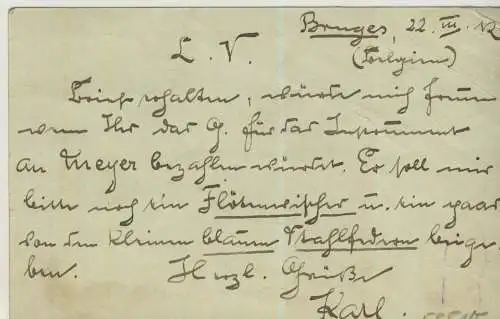 Bruges, 22. III. 12
(Belgien)
L. V.
Brief erhalten, würde mich freuen
wenn Ihr das G. für das Instrument
an Meyer bezahlen würdet. Er soll mir
bitte noch ein Flötenwischer u. ein paar
von den kleinen blauen Stahlfedern beige-
ben. Herzl. Grüße
Karl.